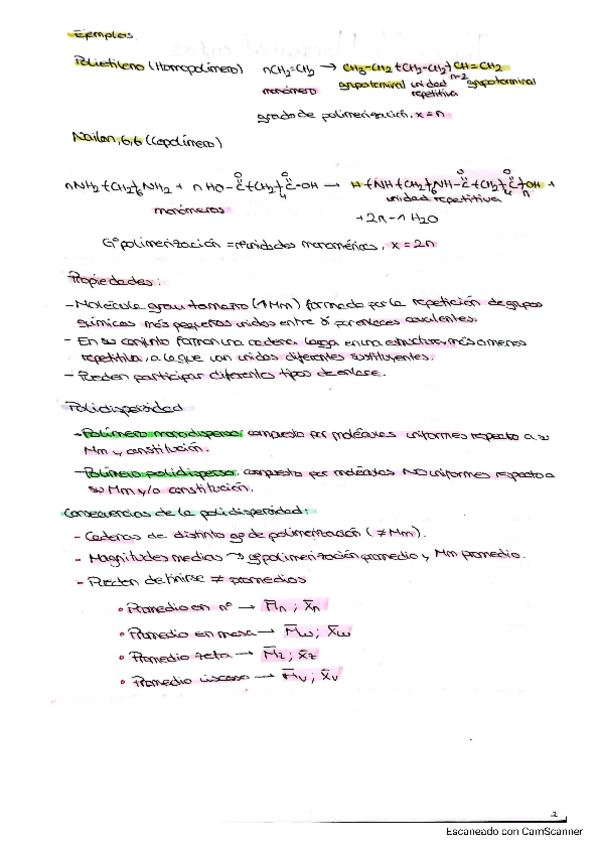 Ejemplos
Polietileno (Homopolímero) nCH₂=CH₂ → CH₃-CH₂ (CH₂-CH₂) CH=CH₂
n-2
monómero grupo terminal unidad repetitiva grupo terminal
grado de polimerización, x = n
Nailon 6,6 (Copolímero)
nNH₂ (CH₂)₆ NH₂ + n HO-C(=O)-(CH₂)₄-C(=O)-OH → H (NH (CH₂)₆ NH-C(=O)-(CH₂)₄ C(=O))n OH +
monómeros unidad repetitiva
+ 2n-1 H₂O
Gº polimerización = nº unidades monoméricas, x = 2n
Propiedades:
- Molécula gran tamaño (↑Mm) formada por la repetición de grupos
químicos más pequeños unidos entre sí por enlaces covalentes.
- En su conjunto forman una cadena larga en una estructura más o menos
repetitiva, a la que van unidos diferentes sustituyentes.
- Pueden participar diferentes tipos de enlace.
Polidispersidad
- Polímero monodisperso: compuesto por moléculas uniformes respecto a su
Mm y constitución.
- Polímero polidisperso: compuesto por moléculas NO uniformes respecto a
su Mm y/o constitución.
Consecuencias de la polidispersidad:
- Cadenas de distinto gº de polimerización (≠ Mm).
- Magnitudes medias → gº polimerización promedio y Mm promedio.
- Pueden definirse ≠ promedios
• Promedio en nº → M̄n ; X̄n
• Promedio en masa → M̄w ; X̄w
• Promedio zeta → M̄z ; X̄z
• Promedio viscoso → M̄v ; X̄v
2
Escaneado con CamScanner